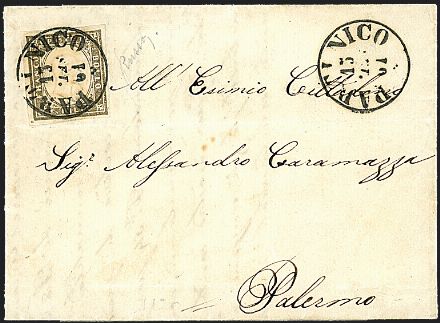 PARTINICO
15
SET.
61
PARTINICO
15
61
All' Esimio Cittadino
Sig.r Alessandro Caramazza
Palermo